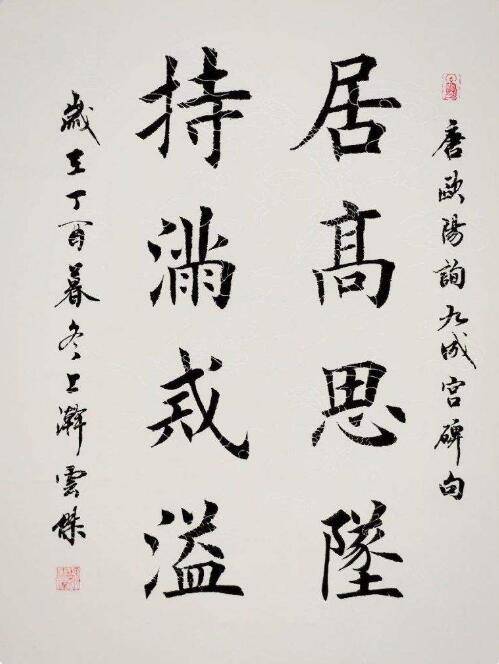 唐歐陽詢九成宮碑句
居髙思墜
持滿戒溢
歲在丁酉暮冬上澣雲傑